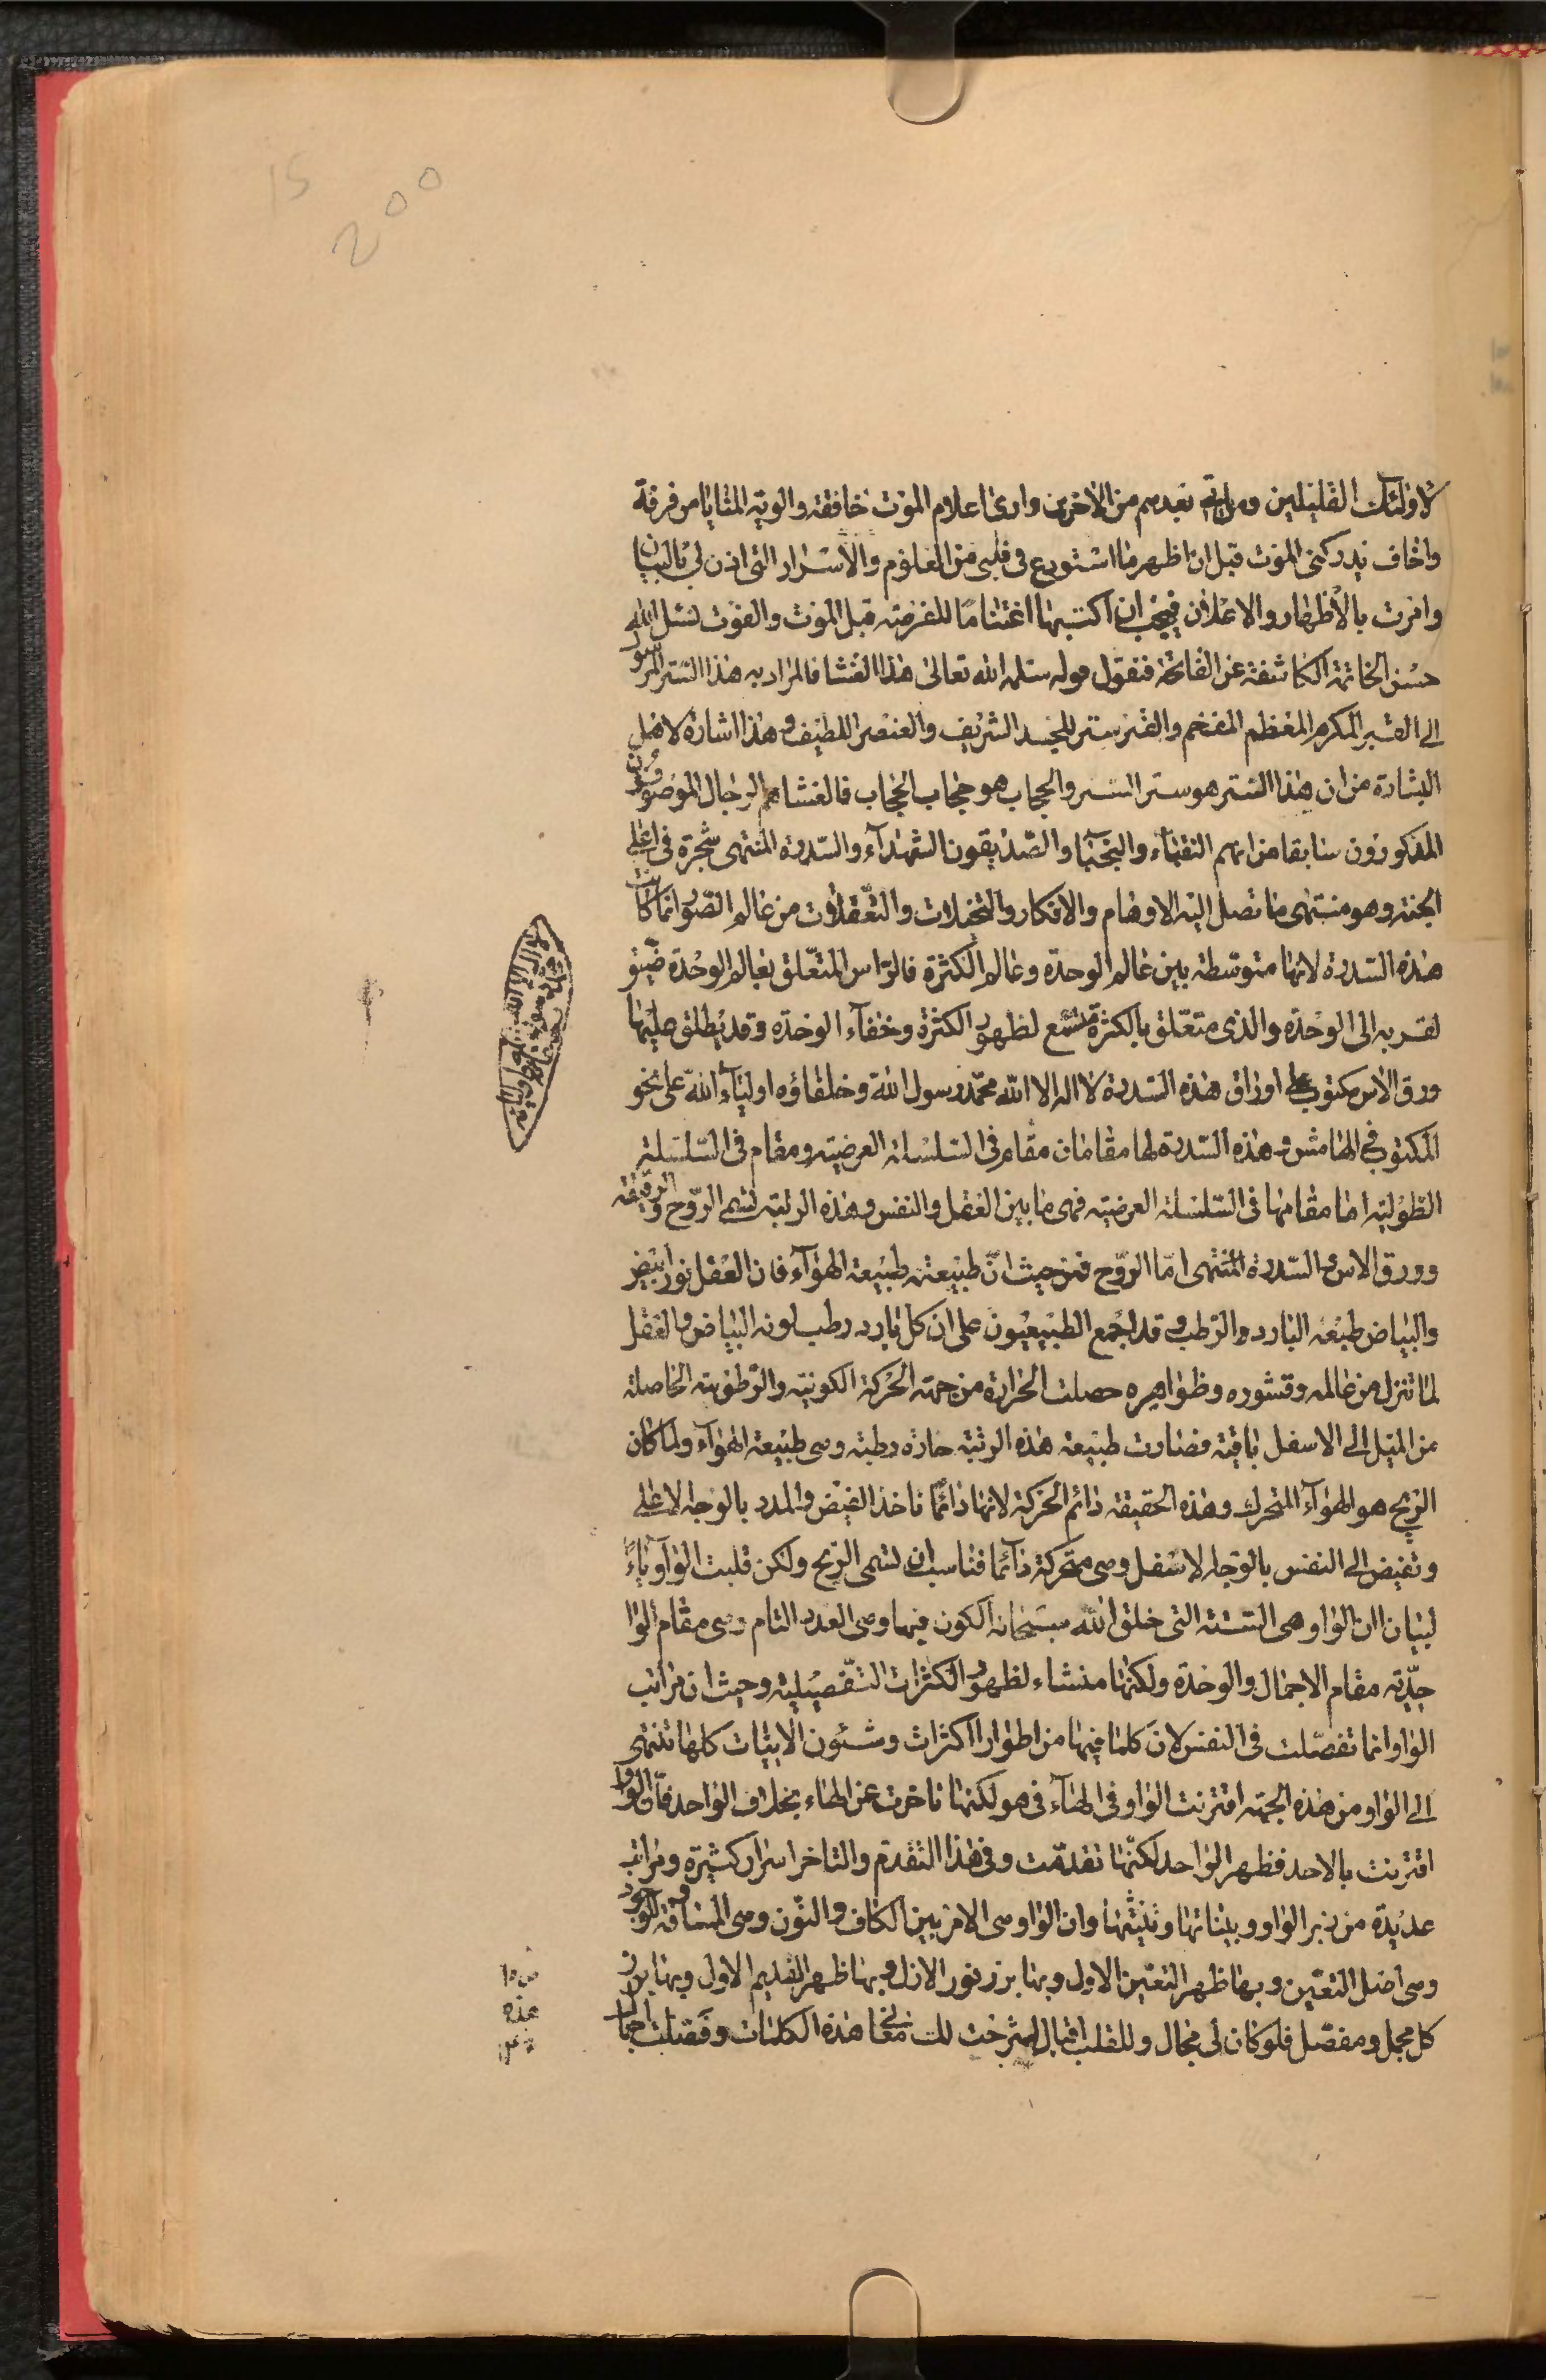 لاولئك القليلين ومن ياتى بعدهم من الاخرين وارى اعلام الموت خافقة والوية المنايا مرفرفة
واخاف يدركنى الموت قبل ان اظهر ما استودع فى قلبى من العلوم والاسرار التى اذن لى بالبيان
وامرت بالاظهار والاعلان فيجب ان اكتبها اغتناما للفرصة قبل الموت والفوت نسئل الله
حسن الخاتمة الكاشفة عن الفاتحة فنقول قوله سلمه الله تعالى هذا الغشا فالمراد به هذا الستر المر
الى القبر المكرم المعظم المفخم والقبر ستر للجسد الشريف والعنصر اللطيف وهذا اشارة لاهل
البشارة من ان هذا الستر هو ستر الستر والحجاب هو حجاب الحجاب فالغشا هم الرجال الموصوفون
المذكورون سابقا من انهم النقباء والنجبا والصديقون الشهدآء والسدرة المنتهى شجرة فى اعلى
الجنة وهو منتهى ما تصل اليه الاوهام والافكار والتخيلات والتعقلات من عالم الصور انما كانت
هذه السدرة لانها متوسطة بين عالم الوحدة وعالم الكثرة فالراس المتعلق بعالم الوحدة ضيق
لقربه الى الوحدة والذى متعلق بالكثرة متسع لظهور الكثرة وخفآء الوحدة وقد يطلق عليها
ورق الاس مكتوب على اوراق هذه السدرة لا اله الا الله محمد رسول الله وخلفاؤه اولياء الله على نحو
المكتوب فى الهامش وهذه السدرة لها مقامان مقام فى السلسلة العرضية ومقام فى السلسلة
الطولية اما مقامها فى السلسلة العرضية فهى ما بين العقل والنفس وهذه الرتبة تسمى الروح والرقيقة
وورق الاس والسدرة المنتهى اما الروح فمن حيث ان طبيعته طبيعة الهوآء فان العقل نور ابيض
والبياض طبعه البارد والرطب وقد اجمع الطبيعيون على ان كل بارد رطب لونه البياض والعقل
لما تنزل من عالمه وقشوره وظواهره حصلت الحرارة من جهة الحركة الكونية والرطوبة الحاصلة
من الميل الى الاسفل باقية فصارت طبيعة هذه الرتبة حارة رطبة وهى طبيعة الهوآء ولما كان
الريح هو الهوآء المتحرك وهذه الحقيقة دائم الحركة لانها دائما تاخذ الفيض والمدد بالوجه الاعلى
وتفيض الى النفس بالوجه الاسفل وهى متحركة دآئما فناسب ان تسمى الريح ولكن قلبت الواو ياءً
لبيان ان الواو هى الستة التى خلق الله سبحانه الكون فيها وهى العدد التام وهى مقام الوا
حدية مقام الاجمال والوحدة ولكنها منشاء لظهور الكثرات التفصيلية وحيث ان مراتب
الواو انما تفصلت فى النفس لان كلما فيها من اطوار الكثرات وشئون الانيات كلها تنتهى
الى الواو ومن هذه الجهة اقترنت الواو فى الهاء فى هو لكنها تاخرت عن الهاء بخلاف الواحد فان الواو
اقترنت بالاحد فظهر الواحد لكنها تقدمت وفى هذا التقدم والتاخر اسرار كثيرة ومراتب
عديدة من زبر الواو وبيناتها وتثنيتها وان الواو هى الامر بين الكاف والنون وهى المسافة للوجود
وهى اصل التعين وبها ظهر التعين الاول وبها برز نور الازل وبها ظهر القديم الاول وبها برز
كل مجمل ومفصل فلو كان لى مجال وللقلب اقبال لشرحت لك معانى هذه الكلمات وفصلت
لا اله الا الله
محمد رسول الله
هذه